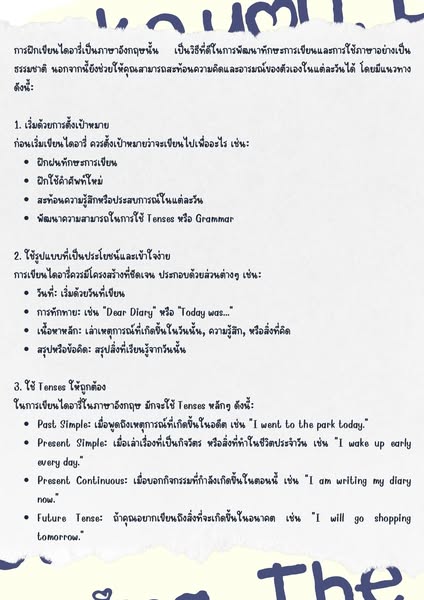 การฝึกเขียนไดอารี่เป็นภาษาอังกฤษนั้น เป็นวิธีที่ดีในการพัฒนาทักษะการเขียนและการใช้ภาษาอย่างเป็น
ธรรมชาติ นอกจากนี้ยังช่วยให้คุณสามารถสะท้อนความคิดและอารมณ์ของตัวเองในแต่ละวันได้ โดยมีแนวทาง
ดังนี้:
1. เริ่มด้วยการตั้งเป้าหมาย
ก่อนเริ่มเขียนไดอารี่ ควรตั้งเป้าหมายว่าจะเขียนไปเพื่ออะไร เช่น:
• ฝึกฝนทักษะการเขียน
• ฝึกใช้คำศัพท์ใหม่
• สะท้อนความรู้สึกหรือประสบการณ์ในแต่ละวัน
• พัฒนาความสามารถในการใช้ Tenses หรือ Grammar
2. ใช้รูปแบบที่เป็นประโยชน์และเข้าใจง่าย
การเขียนไดอารี่ควรมีโครงสร้างที่ชัดเจน ประกอบด้วยส่วนต่างๆ เช่น:
• วันที่: เริ่มด้วยวันที่เขียน
• การทักทาย: เช่น "Dear Diary" หรือ "Today was..."
• เนื้อหาหลัก: เล่าเหตุการณ์ที่เกิดขึ้นในวันนั้น, ความรู้สึก, หรือสิ่งที่คิด
• สรุปหรือข้อคิด: สรุปสิ่งที่เรียนรู้จากวันนั้น
3. ใช้ Tenses ให้ถูกต้อง
ในการเขียนไดอารี่ในภาษาอังกฤษ มักจะใช้ Tenses หลักๆ ดังนี้:
• Past Simple: เมื่อพูดถึงเหตุการณ์ที่เกิดขึ้นในอดีต เช่น "I went to the park today."
• Present Simple: เมื่อเล่าเรื่องที่เป็นกิจวัตร หรือสิ่งที่ทำในชีวิตประจำวัน เช่น "I wake up early
every day."
• Present Continuous: เมื่อบอกกิจกรรมที่กำลังเกิดขึ้นในตอนนี้ เช่น "I am writing my diary
now."
• Future Tense: ถ้าคุณอยากเขียนถึงสิ่งที่จะเกิดขึ้นในอนาคต เช่น "I will go shopping
tomorrow."
The